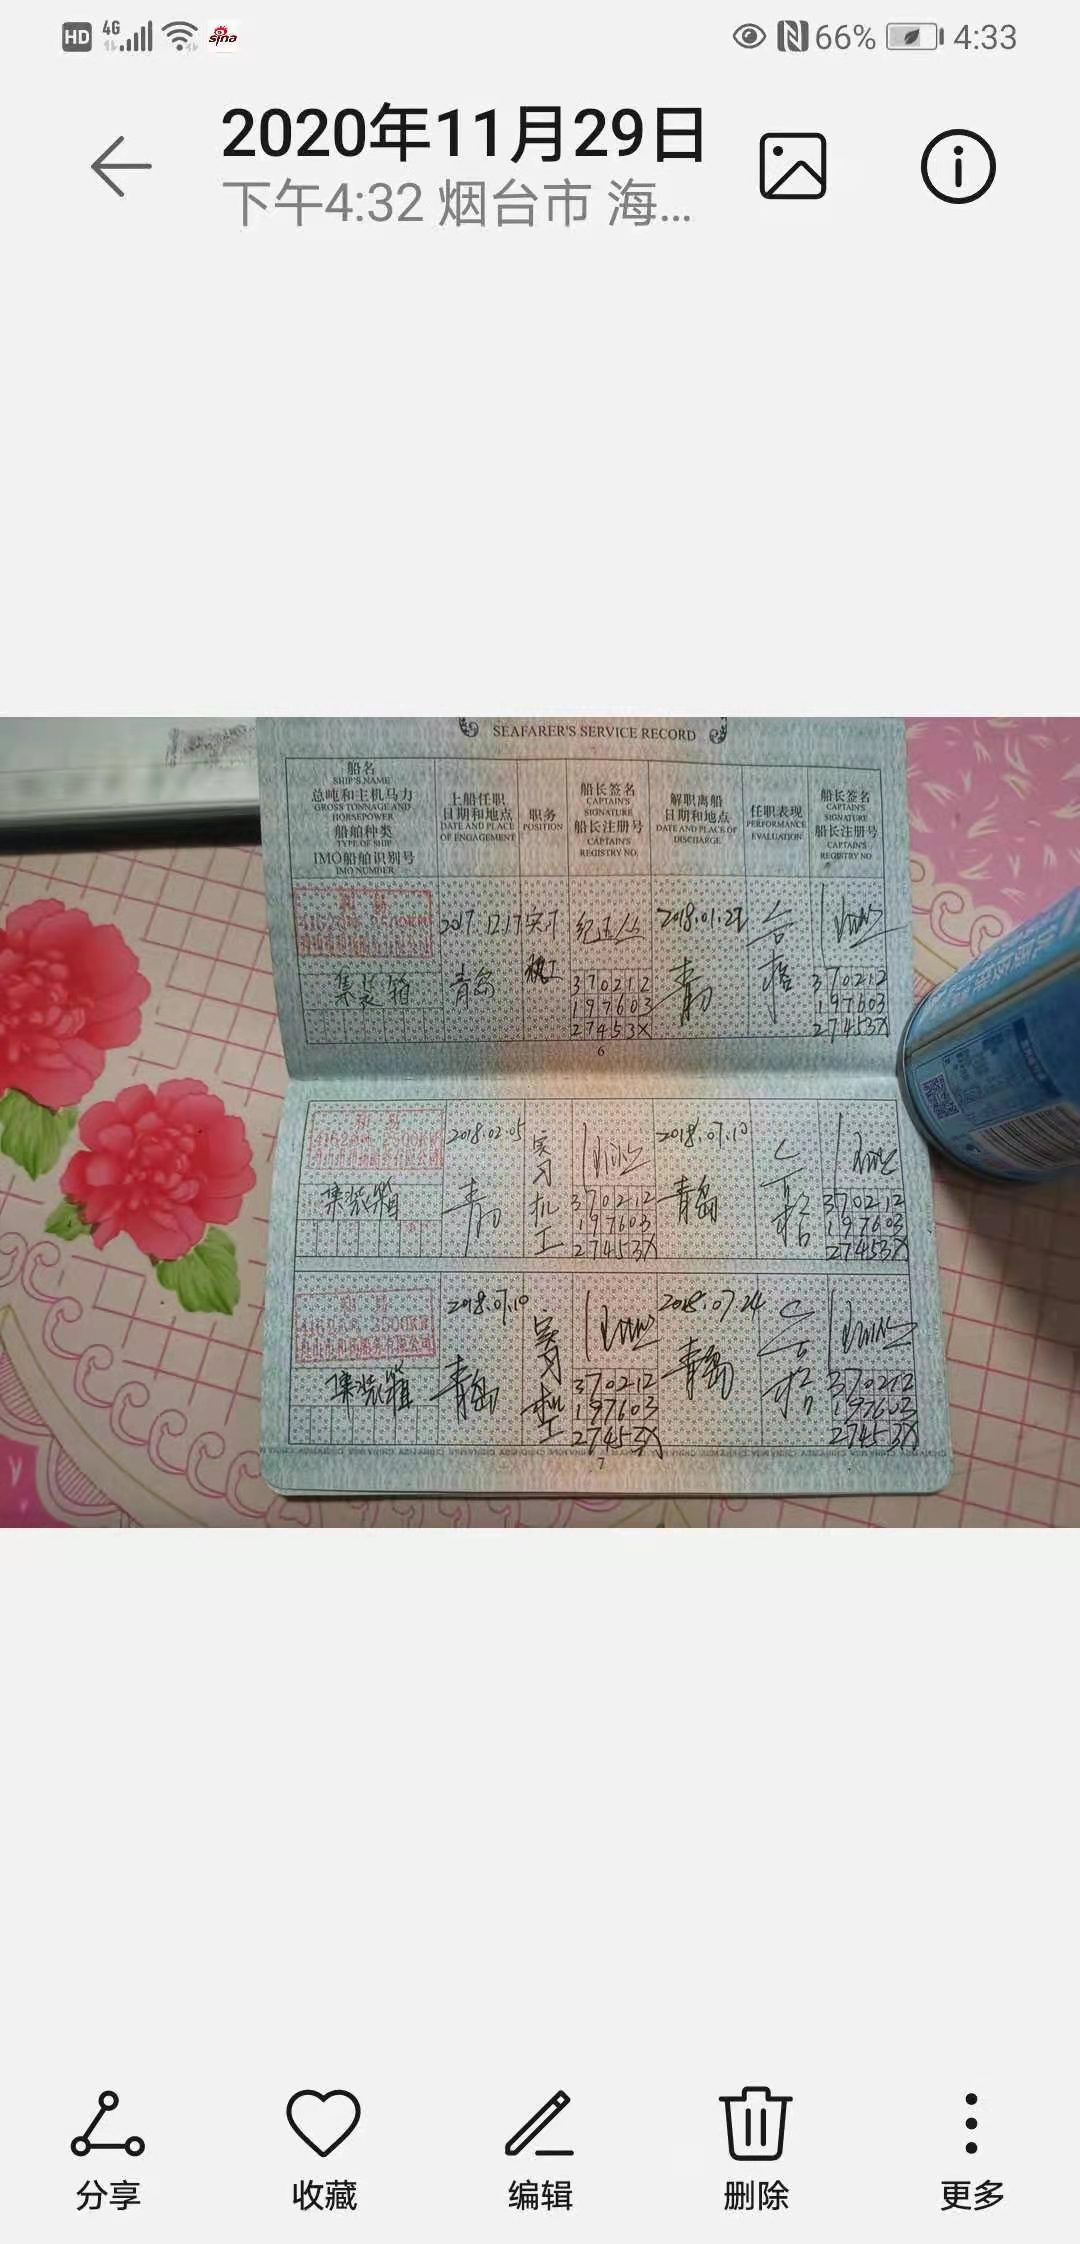 HD 4G sina 66% 4:33
2020年11月29日
下午4:32 烟台市 海...
SEAFARER'S SERVICE RECORD
船名
SHIP'S NAME
总吨和主机马力
GROSS TONNAGE AND
HORSEPOWER
船舶种类
TYPE OF SHIP
IMO船舶识别号
IMO NUMBER
上船任职
日期和地点
DATE AND PLACE
OF ENGAGEMENT
职务
POSITION
船长签名
CAPTAIN'S
SIGNATURE
船长注册号
CAPTAIN'S
REGISTRY NO.
解职离船
日期和地点
DATE AND PLACE OF
DISCHARGE
任职表现
PERFORMANCE
EVALUATION
船长签名
CAPTAIN'S
SIGNATURE
船长注册号
CAPTAIN'S
REGISTRY NO
集装箱
2017.12.17
青岛
实习
机工
370212
197603
27453X
青岛
合格
370212
197603
27453X
6
集装箱
2018.02.05
青岛
实习机工
370212
197603
27453X
2018.07.10
青岛
合格
370212
197603
27453X
集装箱
2018.07.10
青岛
实习机工
370212
197603
27453X
2018.07.24
青岛
合格
370212
197603
27453X
7
分享
收藏
编辑
删除
更多